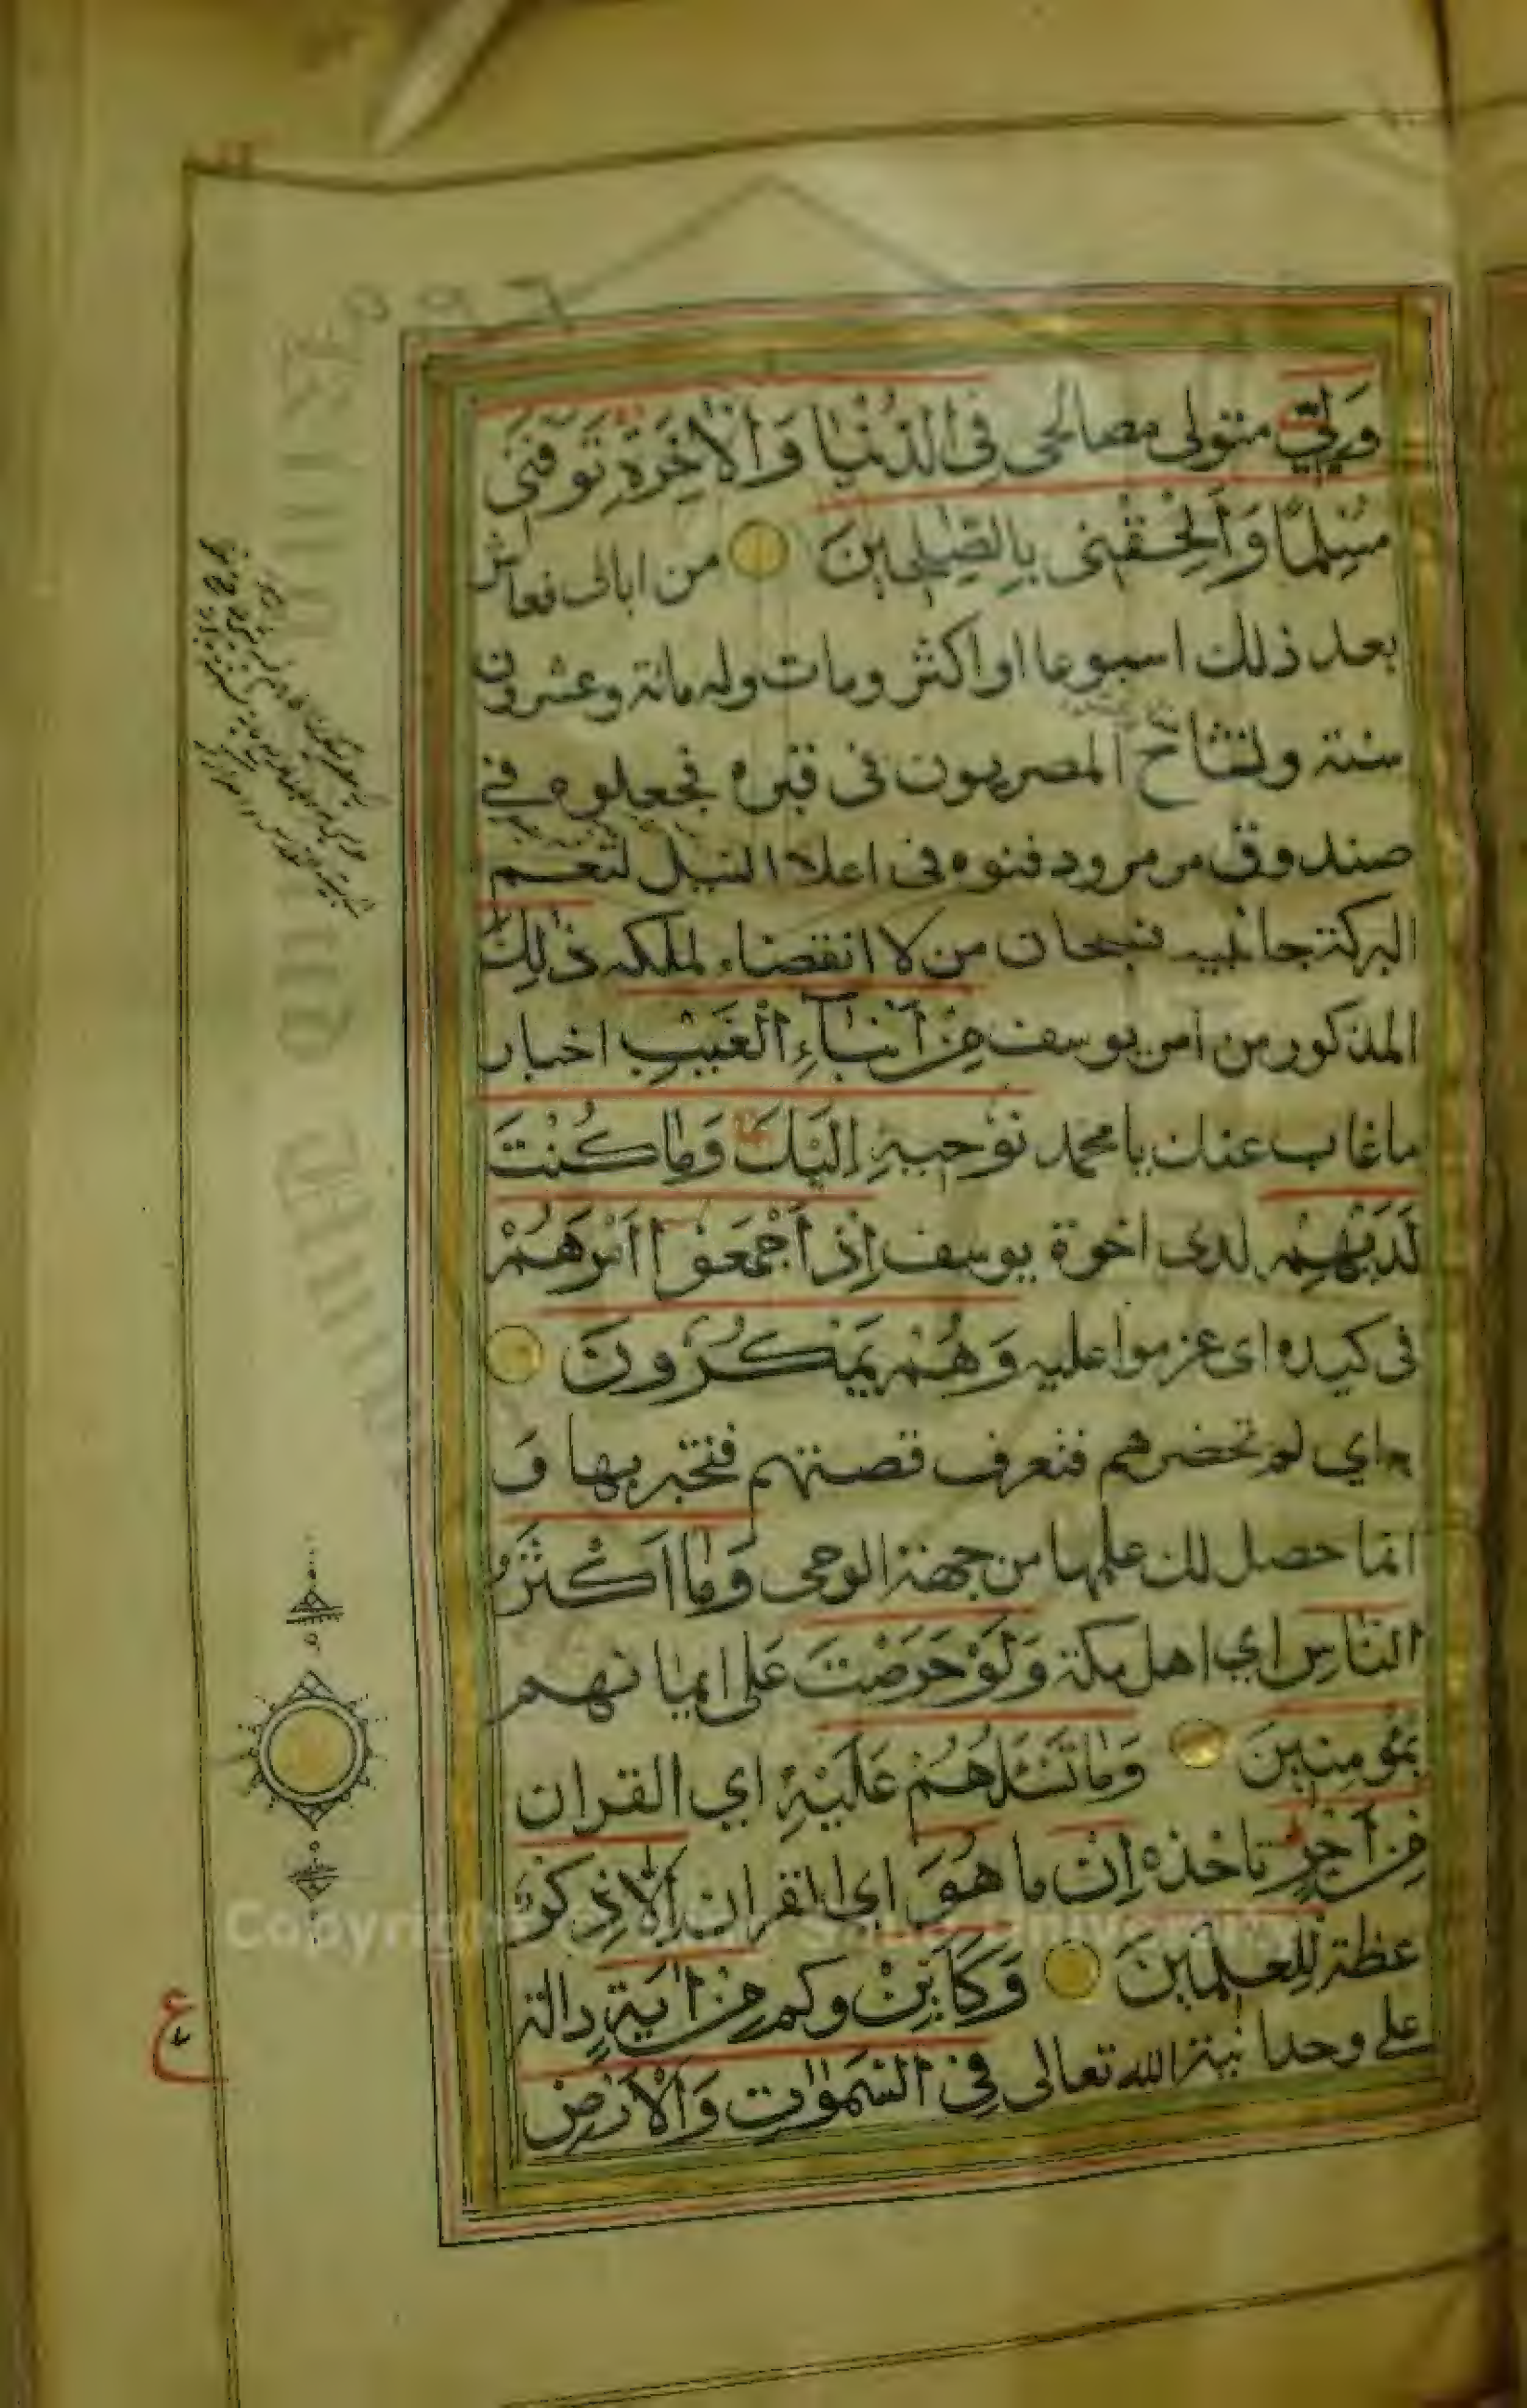 وَلِيّ متولي مصالحى فِى الدُّنْيَا وَالْاٰخِرَةِ تَوَفَّنِى
مُسْلِمًا وَاَلْحِقْنِى بِالصّٰلِحِينَ من ابائى فعاش
بعد ذلك اسبوعا او اكثر ومات وله مائة وعشرون
سنة وتشاح المصريون فى قبره فجعلوه في
صندوق مرمر ودفنوه فى اعلا النيل لتعم
البركة جانبيه فسبحان من لا انقضاء لملكه ذٰلِكَ
المذكور من امر يوسف مِنْ اَنْبَاۤءِ الْغَيْبِ اخبار
ما غاب عنك يا محمد نُوْحِيهِ اِلَيْكَ وَمَا كُنْتَ
لَدَيْهِمْ لدى اخوة يوسف اِذْ اَجْمَعُوْا اَمْرَهُمْ
فى كيده اى عزموا عليه وَهُمْ يَمْكُرُونَ
به اي لم تحضرهم فتعرف قصتهم فتخبر بها وَ
انما حصل لك علمها من جهة الوحى وَمَا اَكْثَرُ
النَّاسِ اي اهل مكة وَلَوْ حَرَصْتَ على ايمانهم
بِمُؤمِنِينَ وَمَا تَسْئَلُهُمْ عَلَيْهِ اي القران
مِنْ اَجْرٍ تاخذه اِنْ ما هُوَ اي القران اِلَّا ذِكْرٌ
عظة لِلْعٰلَمِينَ وَكَاَيِّنْ وكم مِنْ اٰيَةٍ دالة
على وحدانية الله تعالى فِى السَّمٰوَاتِ وَالْاَرْضِ
ع
Copyright © King Saud University